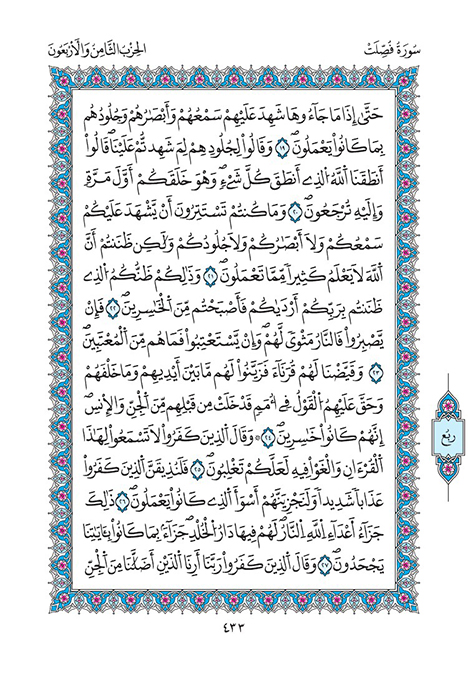 سُورَةُ فُصِّلَتْ
الحِزْبُ الثَّامِنُ وَالْأَرْبَعُونَ
حَتَّىٰ إِذَا مَا جَآءُوهَا شَهِدَ عَلَيْهِمْ سَمْعُهُمْ وَأَبْصَٰرُهُمْ وَجُلُودُهُم
بِمَا كَانُواْ يَعْمَلُونَۖ ١٩ وَقَالُواْ لِجُلُودِهِمْ لِمَ شَهِدتُّمْ عَلَيْنَاۖ قَالُواْ
أَنطَقَنَا اَللَّهُ اُلذِے أَنطَقَ كُلَّ شَےْءٖۖ وَهُوَ خَلَقَكُمْ أَوَّلَ مَرَّةٖ
وَإِلَيْهِ تُرْجَعُونَۖ ٢٠ وَمَا كُنتُمْ تَسْتَتِرُونَ أَنْ يَّشْهَدَ عَلَيْكُمْ
سَمْعُكُمْ وَلَا أَبْصَٰرُكُمْ وَلَا جُلُودُكُمْ وَلَٰكِن ظَنَنتُمْ أَنَّ
اَللَّهَ لَا يَعْلَمُ كَثِيراٗ مِّمَّا تَعْمَلُونَۖ ٢١ وَذَٰلِكُمْ ظَنُّكُمُ اُلذِے
ظَنَنتُم بِرَبِّكُمْ أَرْدَيٰكُمْ فَأَصْبَحْتُم مِّنَ اَلْخَٰسِرِينَۖ ٢٢ فَإِنْ
يَّصْبِرُواْ فَالنَّارُ مَثْوىٗ لَّهُمْۖ وَإِنْ يَّسْتَعْتِبُواْ فَمَا هُم مِّنَ اَلْمُعْتَبِينَۖ
٢٣ وَقَيَّضْنَا لَهُمْ قُرَنَآءَ فَزَيَّنُواْ لَهُم مَّا بَيْنَ أَيْدِيهِمْ وَمَا خَلْفَهُمْ
وَحَقَّ عَلَيْهِمُ اُلْقَوْلُ فِے أُمَمٖ قَدْ خَلَتْ مِن قَبْلِهِم مِّنَ اَلْجِنِّ وَالِانسِۖ
إِنَّهُمْ كَانُواْ خَٰسِرِينَۖ ٢٤ وَقَالَ اَلذِينَ كَفَرُواْ لَا تَسْمَعُواْ لِهَٰذَا
اَلْقُرْءَانِ وَالْغَوْاْ فِيهِ لَعَلَّكُمْ تَغْلِبُونَۖ ٢٥ فَلَنُذِيقَنَّ اَلذِينَ كَفَرُواْ
عَذَاباٗ شَدِيداٗ وَلَنَجْزِيَنَّهُمْ أَسْوَأَ اَلذِے كَانُواْ يَعْمَلُونَۖ ٢٦ ذَٰلِكَ
جَزَآءُ اَعْدَآءِ اِللَّهِ اِلنَّارُۖ لَهُمْ فِيهَا دَارُ اُلْخُلْدِ جَزَآءَۢ بِمَا كَانُواْ بِـَٔايَٰتِنَا
يَجْحَدُونَۖ ٢٧ وَقَالَ اَلذِينَ كَفَرُواْ رَبَّنَا أَرِنَا اَلذَيْنِ أَضَلَّٰنَا مِنَ اَلْجِنِّ
ربع
٤٣٣